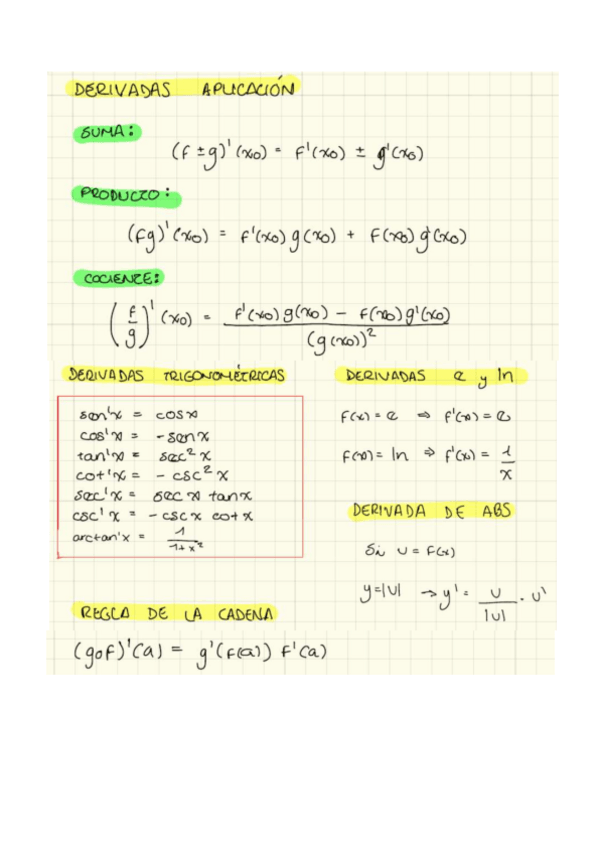 DERIVADAS APLICACIÓN
SUMA:
(f ± g)'(x₀) = f'(x₀) ± g'(x₀)
PRODUCTO:
(fg)'(x₀) = f'(x₀) g(x₀) + f(x₀) g'(x₀)
COCIENTE:
(f/g)'(x₀) = (f'(x₀) g(x₀) − f(x₀) g'(x₀)) / (g(x₀))²
DERIVADAS TRIGONOMÉTRICAS
sen'x = cosx
cos'x = -senx
tan'x = sec²x
cot'x = -csc²x
sec'x = secx tanx
csc'x = -cscx cotx
arctan'x = 1/(1+x²)
REGLA DE LA CADENA
(g∘f)'(a) = g'(f(a)) f'(a)
DERIVADAS e y ln
f(x) = e ⇒ f'(x) = e
f(x) = ln ⇒ f'(x) = 1/x
DERIVADA DE ABS
Si u = f(x)
y=|u| → y' = u/|u| · u'